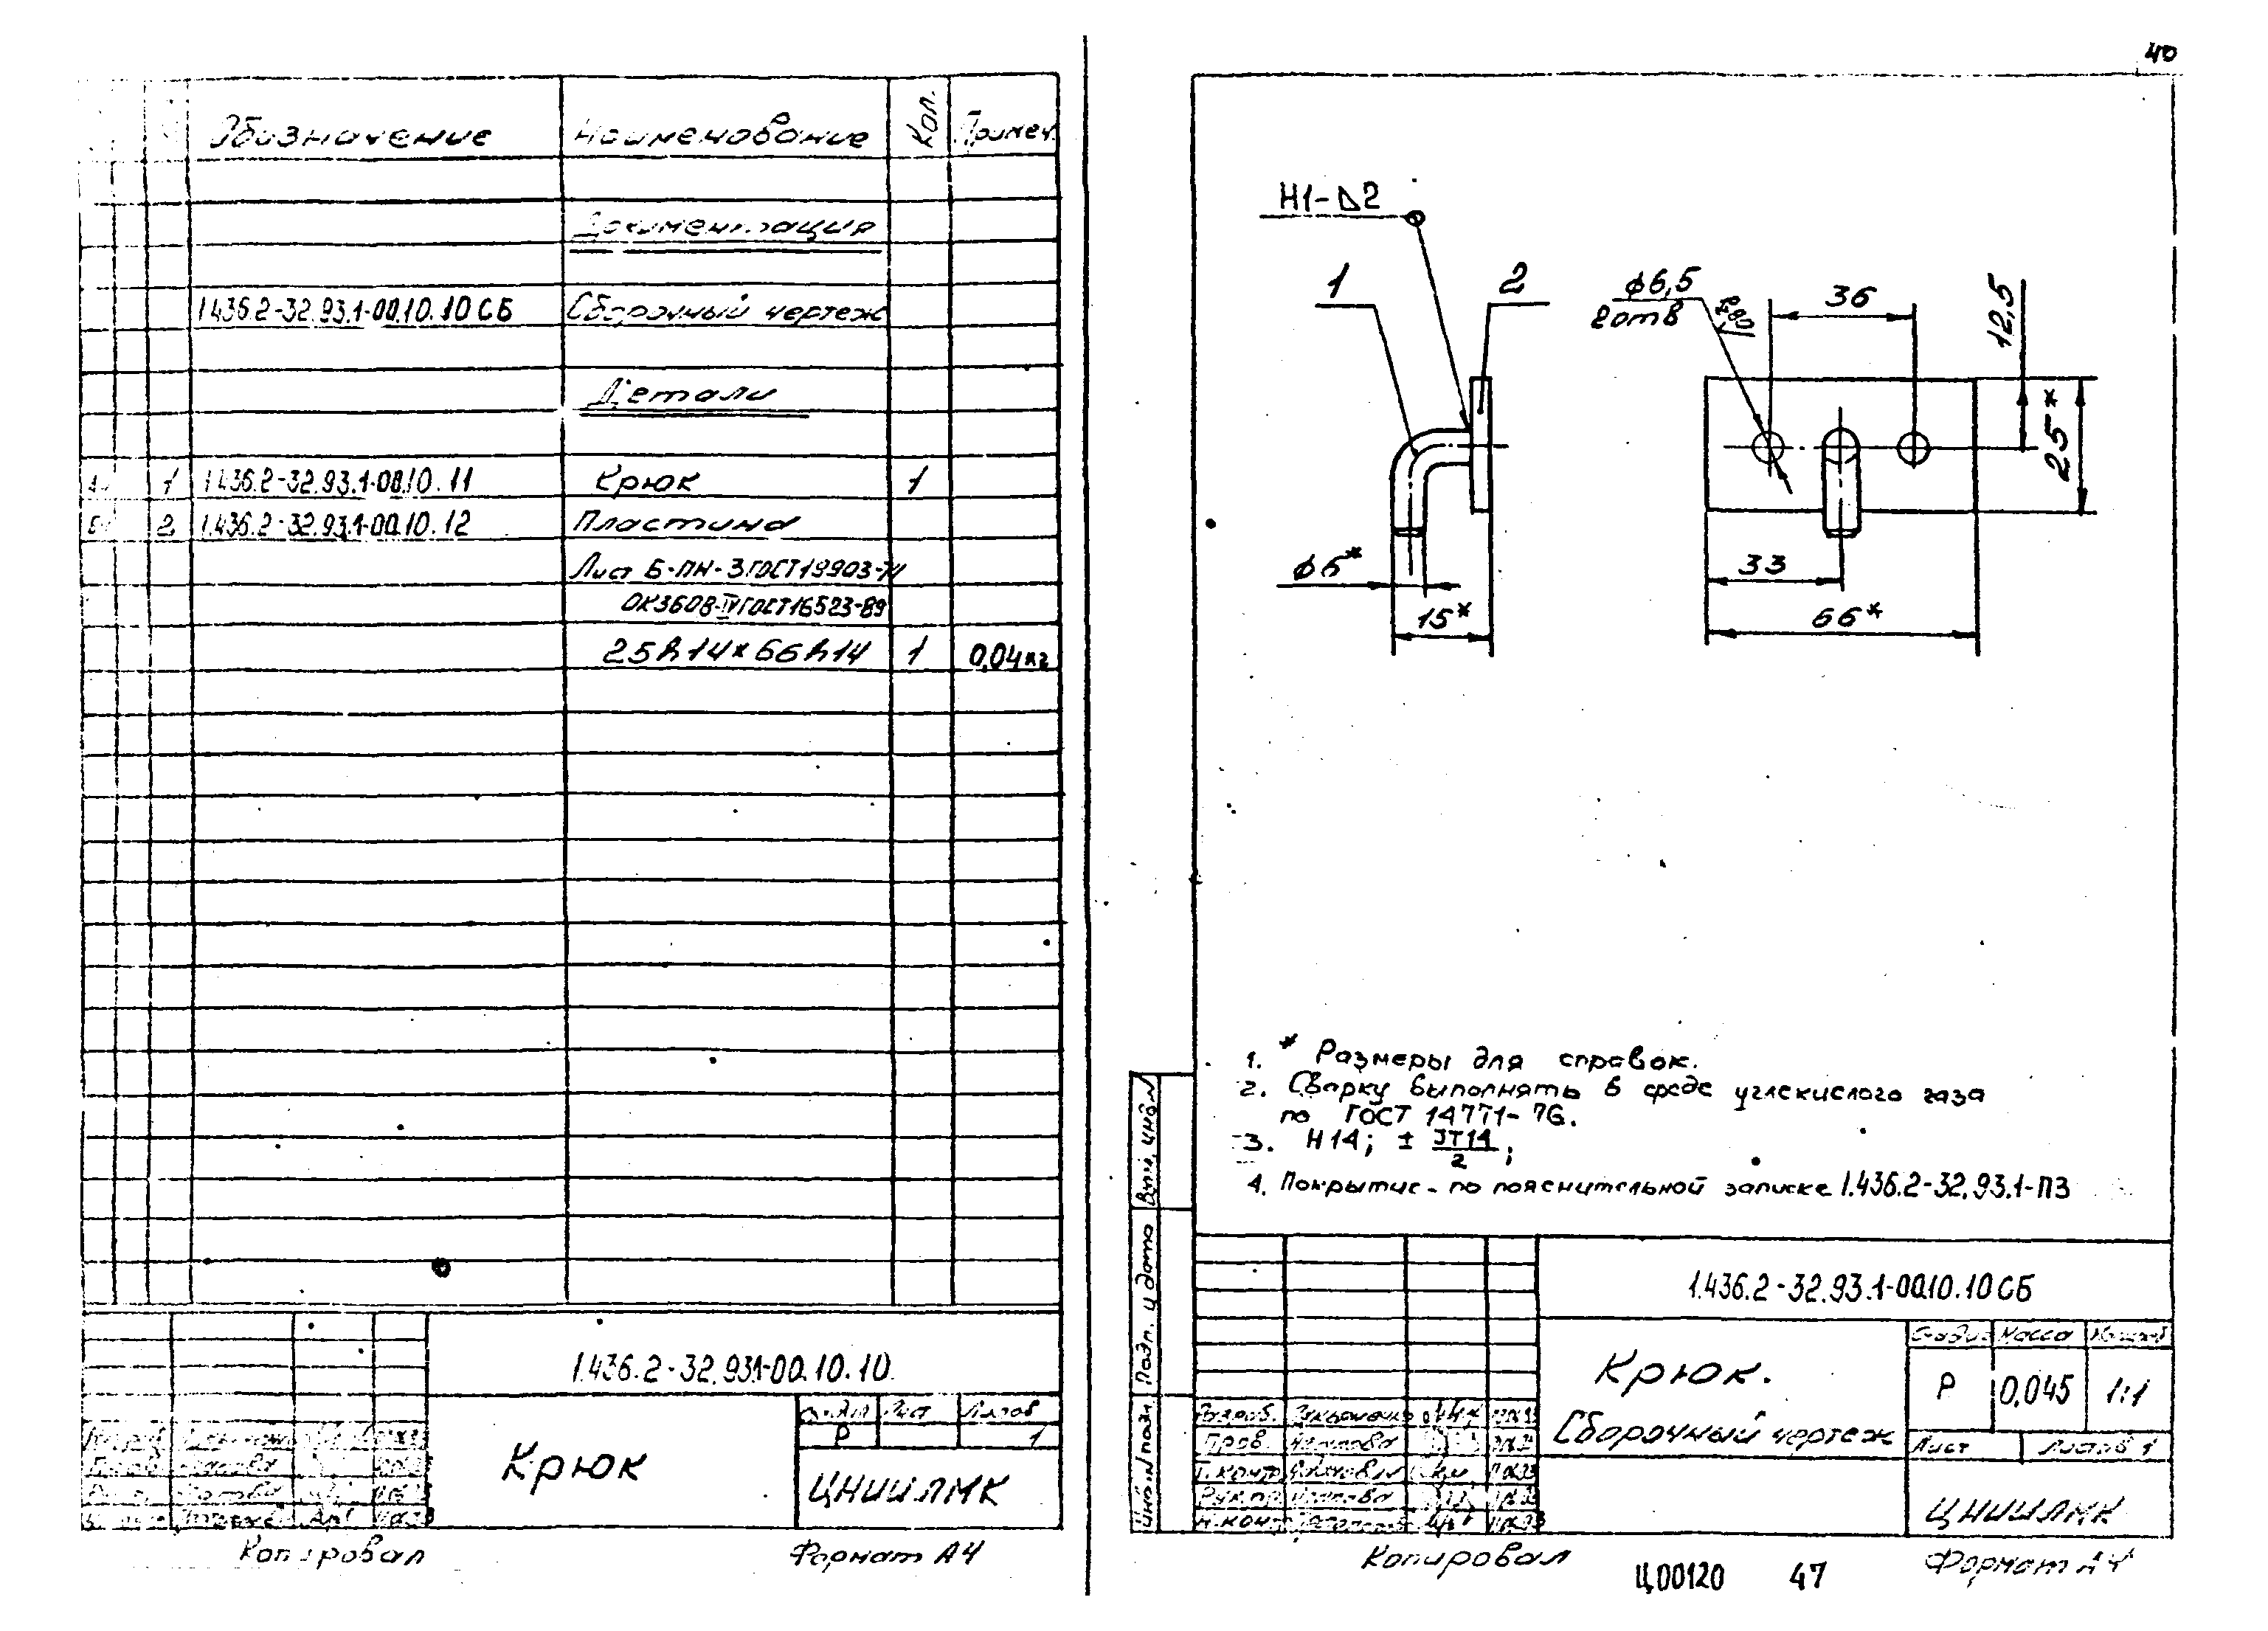 40
Обозначение Наименование Кол. Примеч.
Документация
1.436.2-32.93.1-00.10.10 СБ Сборочный чертеж
Детали
1 1.436.2-32.93.1-00.10.11 Крюк 1
2 1.436.2-32.93.1-00.10.12 Пластина
Лист Б-ПН-3 ГОСТ 19903-74
ОК360В-IV ГОСТ 16523-89
25h14×66h14 1 0,04кг
1.436.2-32.93.1-00.10.10
Лист Листов
Р 1
Крюк
ЦНИИЛМК
Копировал Формат А4
Н1-⊿2
1 2
ϕ6,5
2 отв
36
12,5
25*
ϕ6*
15*
33
66*
1. * Размеры для справок.
2. Сварку выполнять в среде углекислого газа
по ГОСТ 14771-76.
3. Н14; ± IT14/2;
4. Покрытие - по пояснительной записке 1.436.2-32.93.1-ПЗ
Взам. инв. N
Подп. и дата
Инв. N подл.
1.436.2-32.93.1-00.10.10 СБ
Крюк.
Сборочный чертеж
Стадия Масса Масштаб
Р 0,045 1:1
Лист Листов 1
ЦНИИЛМК
Разраб.
Пров.
Т. контр.
Н. контр.
Копировал Формат А4
Ц00120 47